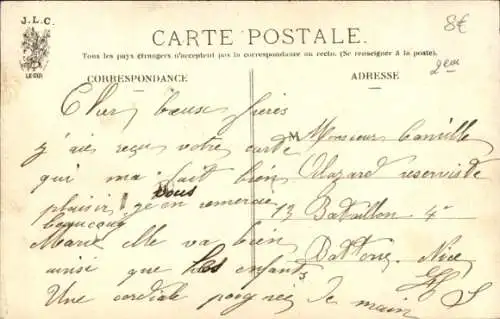 J.L.C.
8€
CARTE POSTALE.
2eu
Tous les pays étrangers n'acceptent pas la correspondance au recto. (Se renseigner à la poste).
CORRESPONDANCE
ADRESSE
Cher beaux frères
j'aie reçu votre carte
qui ma fait bien
plaisir je vous en remercie
beaucoup
Marie Elle va bien
ainsi que les enfants
Une cordiale poignée de main
M Monsieur Camille
Olazard reserviste
13 Bataillon 4e
Batterie Nice